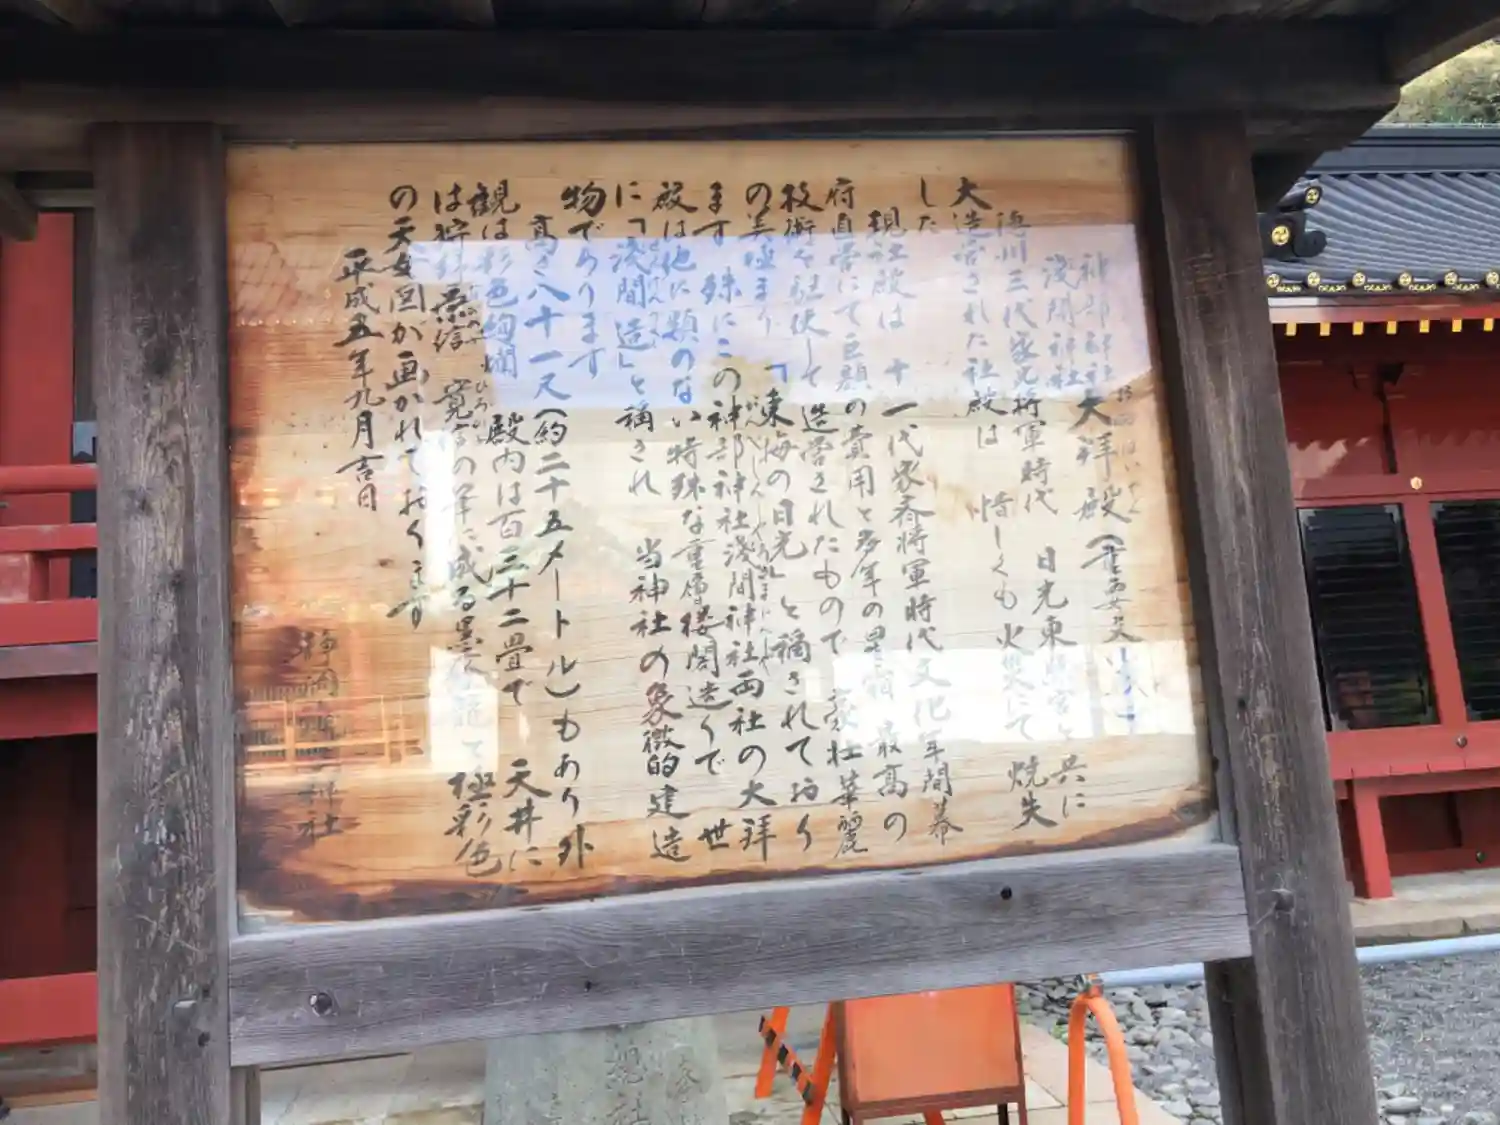 神部神社
浅間神社 大拝殿（重要文
徳川三代家光将軍時代 日光東照宮と共に
大造営された社殿は 惜しくも火災にて焼失
した
現社殿は 十一代家斉将軍時代文化年間幕
府直営にて巨額の費用と多年の星霜 最高の
技術を駆使して造営されたもので 豪壮華麗
の美極まり「東海の日光」と称されており
ます 殊にこの神部神社浅間神社両社の大拝
殿は他に類のない特殊な重層楼閣造りで 世
に「浅間造」と称され 当神社の象徴的建造
物であります
高さ八十一尺（約二十五メートル）もあり外
観は彩色絢爛 殿内は百三十二畳で 天井に
は狩野 寛信の筆に成る 極彩色
の天女図が画かれております
平成五年九月吉日
静岡浅間神社
総社